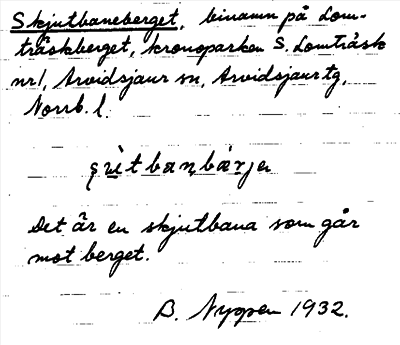 Skjutbaneberget, binamn på Lom-
träskberget, kronoparken S. Lomträsk
nr 1, Arvidsjaur sn, Arvidsjaur tg,
Norrb. l.
Det är en skjutbana som går
mot berget.
B. 1932.